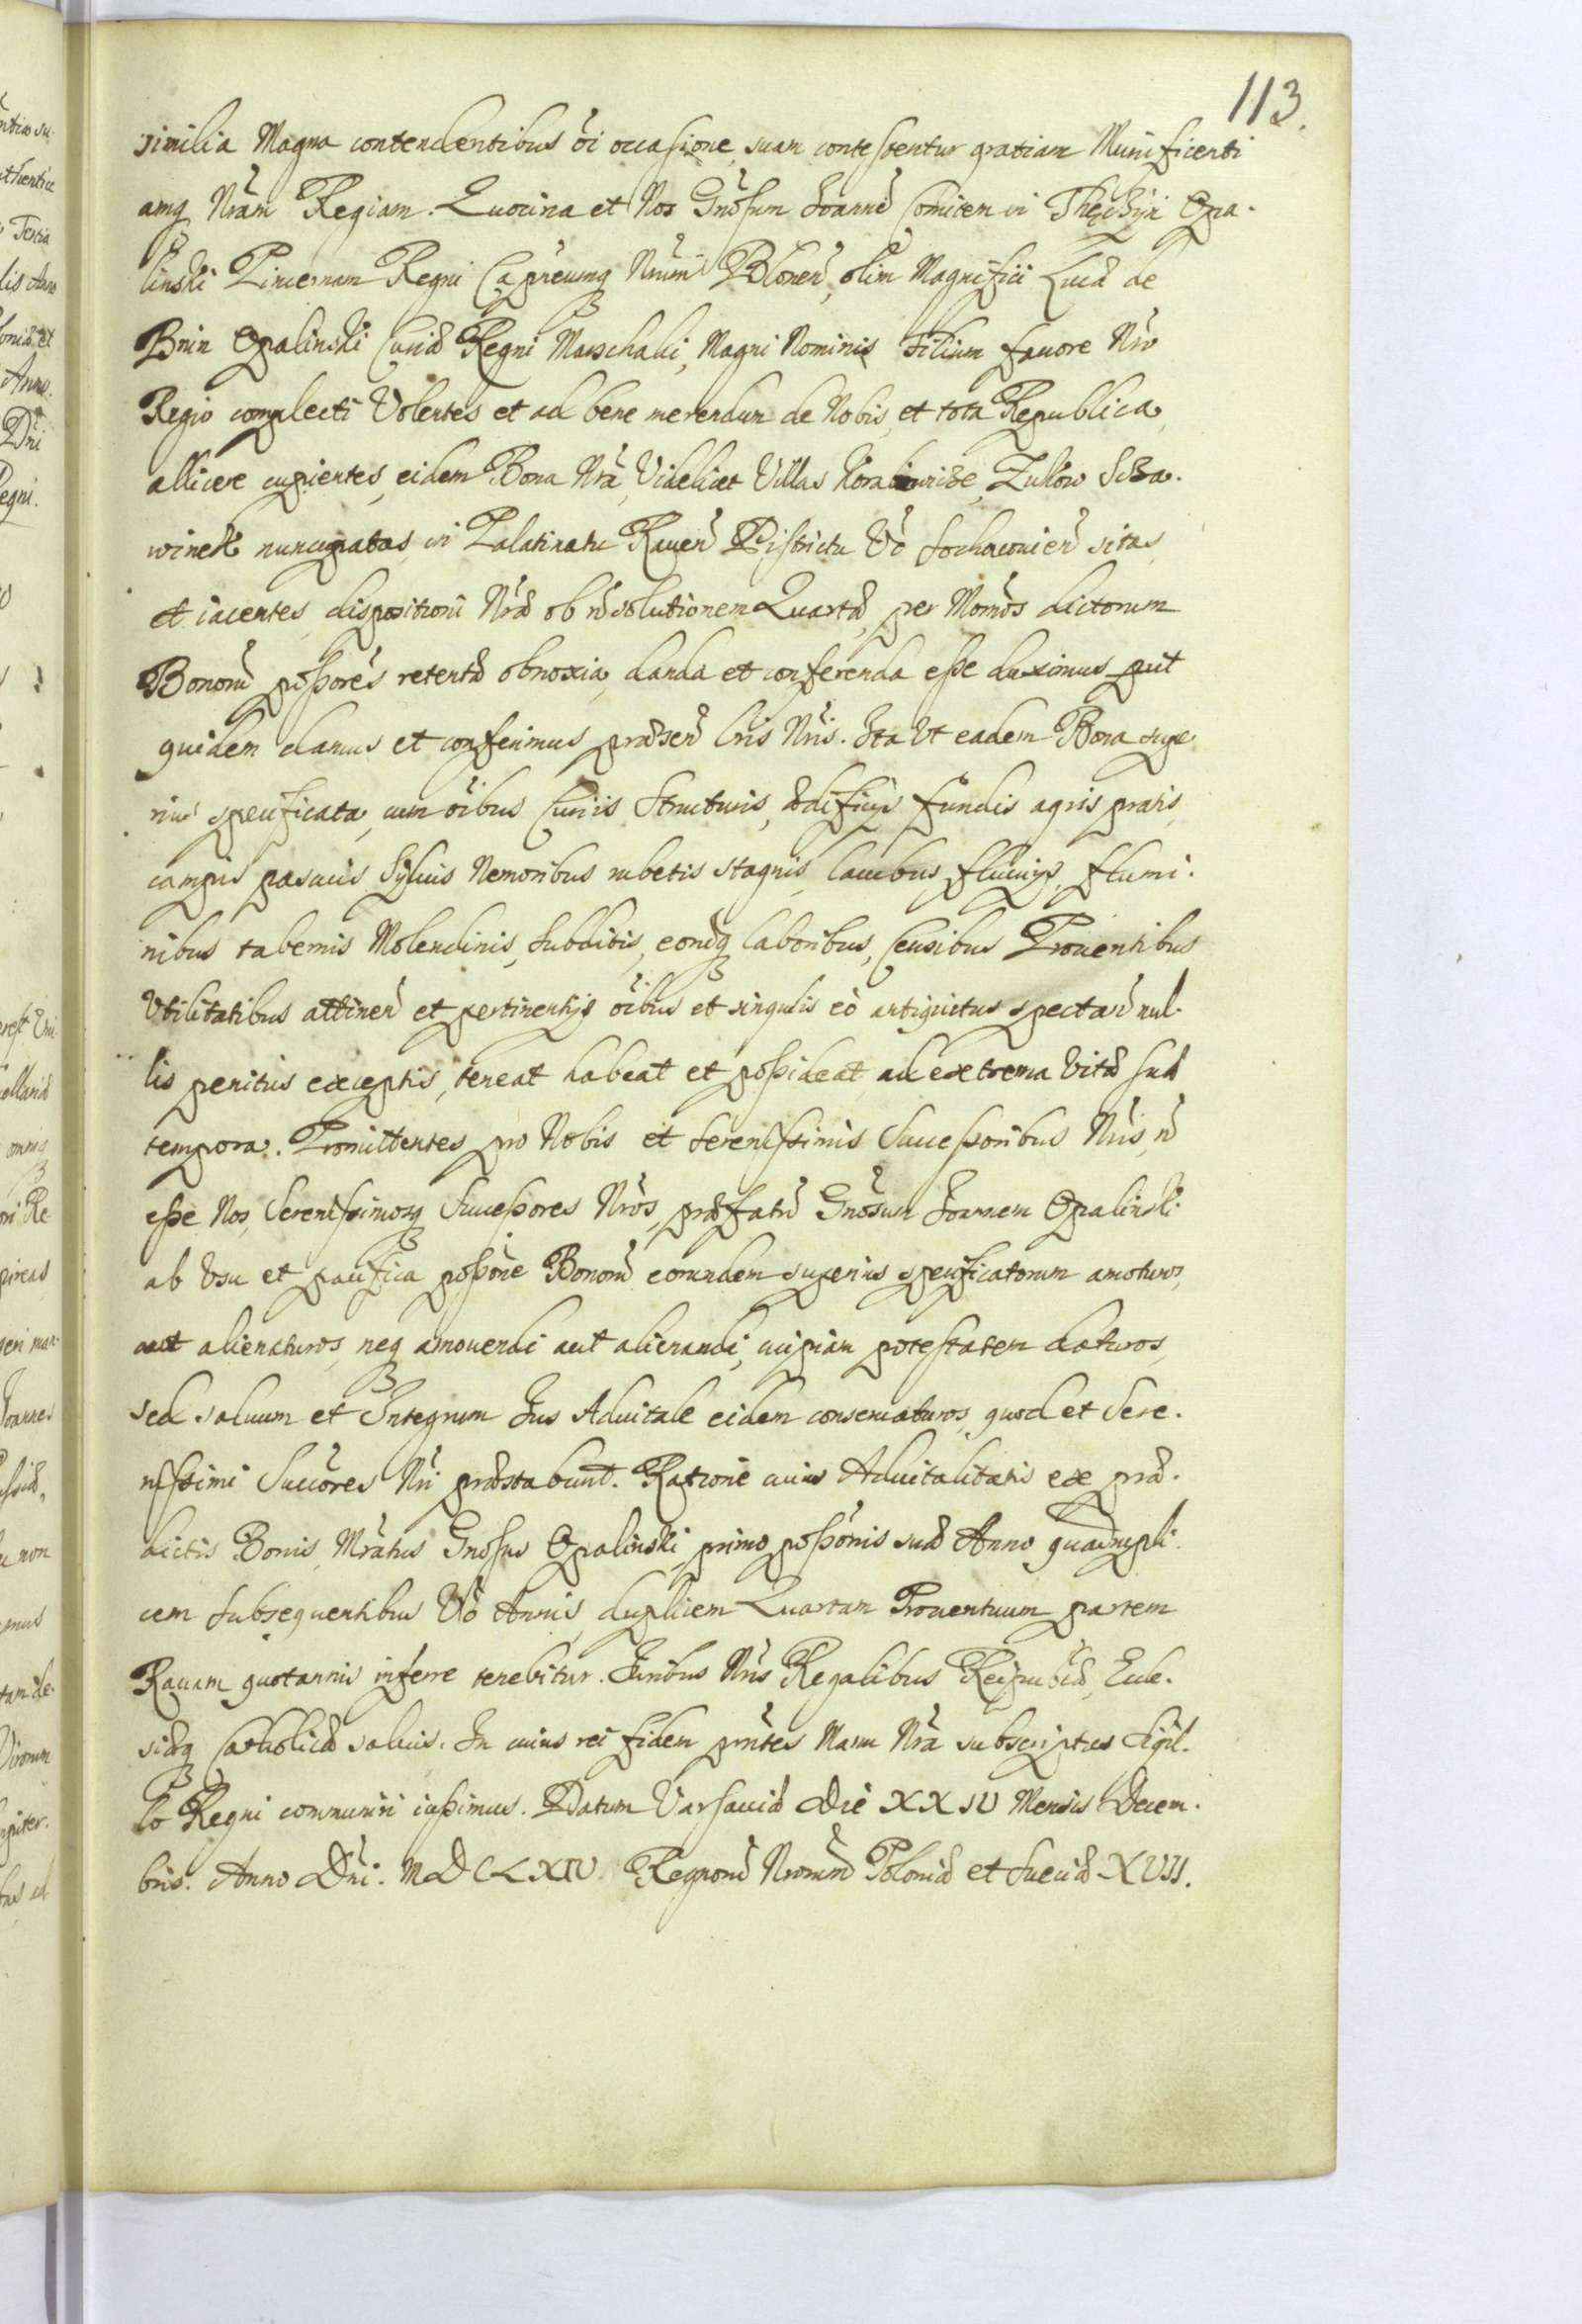 113.
similia Magna contendentibus oi occasione, suam contestentur gratiam Munificenti
amq Nram Regiam. Quocirca et Nos Gnosum Joanne Comitem in Thęczyn Opa-
linski Pincernam Regni Capneumq Nrum Blonen, olim Magnifici Lucæ de
Bnin Opalinski Curiæ Regni Marschalci, Magni Nominis Filium fauore Nro
Regio complecti Volentes et ad bene merendum de Nobis, et tota Republica,
allicere cupientes, eidem Bona Nra, Videlicet Villas Zukow Scza-
winek nuncupatas, in Palatinatu Rauen Districtu Vo Sochacouien sitas,
et iacentes, dispositioni Nræ ob n solutionem Quartæ, per Momos dictorum
Bonoru possores retentæ obnoxia, danda et conferenda esse duximus, put
quidem damus et conferimus præsen Lris Nris. Ita Vt eadem Bona supe
rius specificata, cum oibus Curiis Structuris, ædificijs fundis agris pratis,
campis pascuis Syluis Nemoribus rubetis stagnis, lacubus, fluuijs, flumi-
nibus tabernis Molendinis, Subditis, eorūq laboribus, Censibus Prouentibus
Vtilitatibus attinen et pertinentijs oibus et singulis eo antiquitus spectan nul-
lis penitus exceptis, teneat habeat et possideat, ad extrema Vitæ suæ
tempora. Promittentes pro Nobis et Serenissimis Successoribus Nris, n
esse Nos, Serenissimosq Successores Nros, præfatu Gnosum Joannem Opalinski
ab Vsu et pacifica possone Bonoru eorundem superius specificatorum amoturos,
aut alienaturos, neq amouendi aut alienandi, cuipiam potestatem daturos,
sed saluum et Integrum Jus Aduitale eidem conseruaturos, quod et Sere-
nissimi Succores Nri præstabunt. Ratione cuius Aduitalitatis ex præ-
dictis Bonis, Mratus Gnosus Opalinski, primo possonis suæ Anno quadrupli-
cem subsequentibus Vo Annis, duplicem Quartam Prouentuum partem
Rauam quotannis inferre tenebitur. Juribus Nris Regalibus Reipubcæ, Eccle-
siæq Catholicæ saluis. In cuius rei fidem pntes Manu Nra subscriptas Sigil-
lo Regni communiri iussimus. Datum Varsauiæ Die XXIV Mensis Decem-
bris. Anno Dni. MDCLXIV Regnoru Nrorum Poloniæ et Sueciæ XVII.